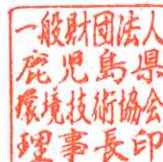 一般財団法人
鹿児島県
環境技術協会
理事長印